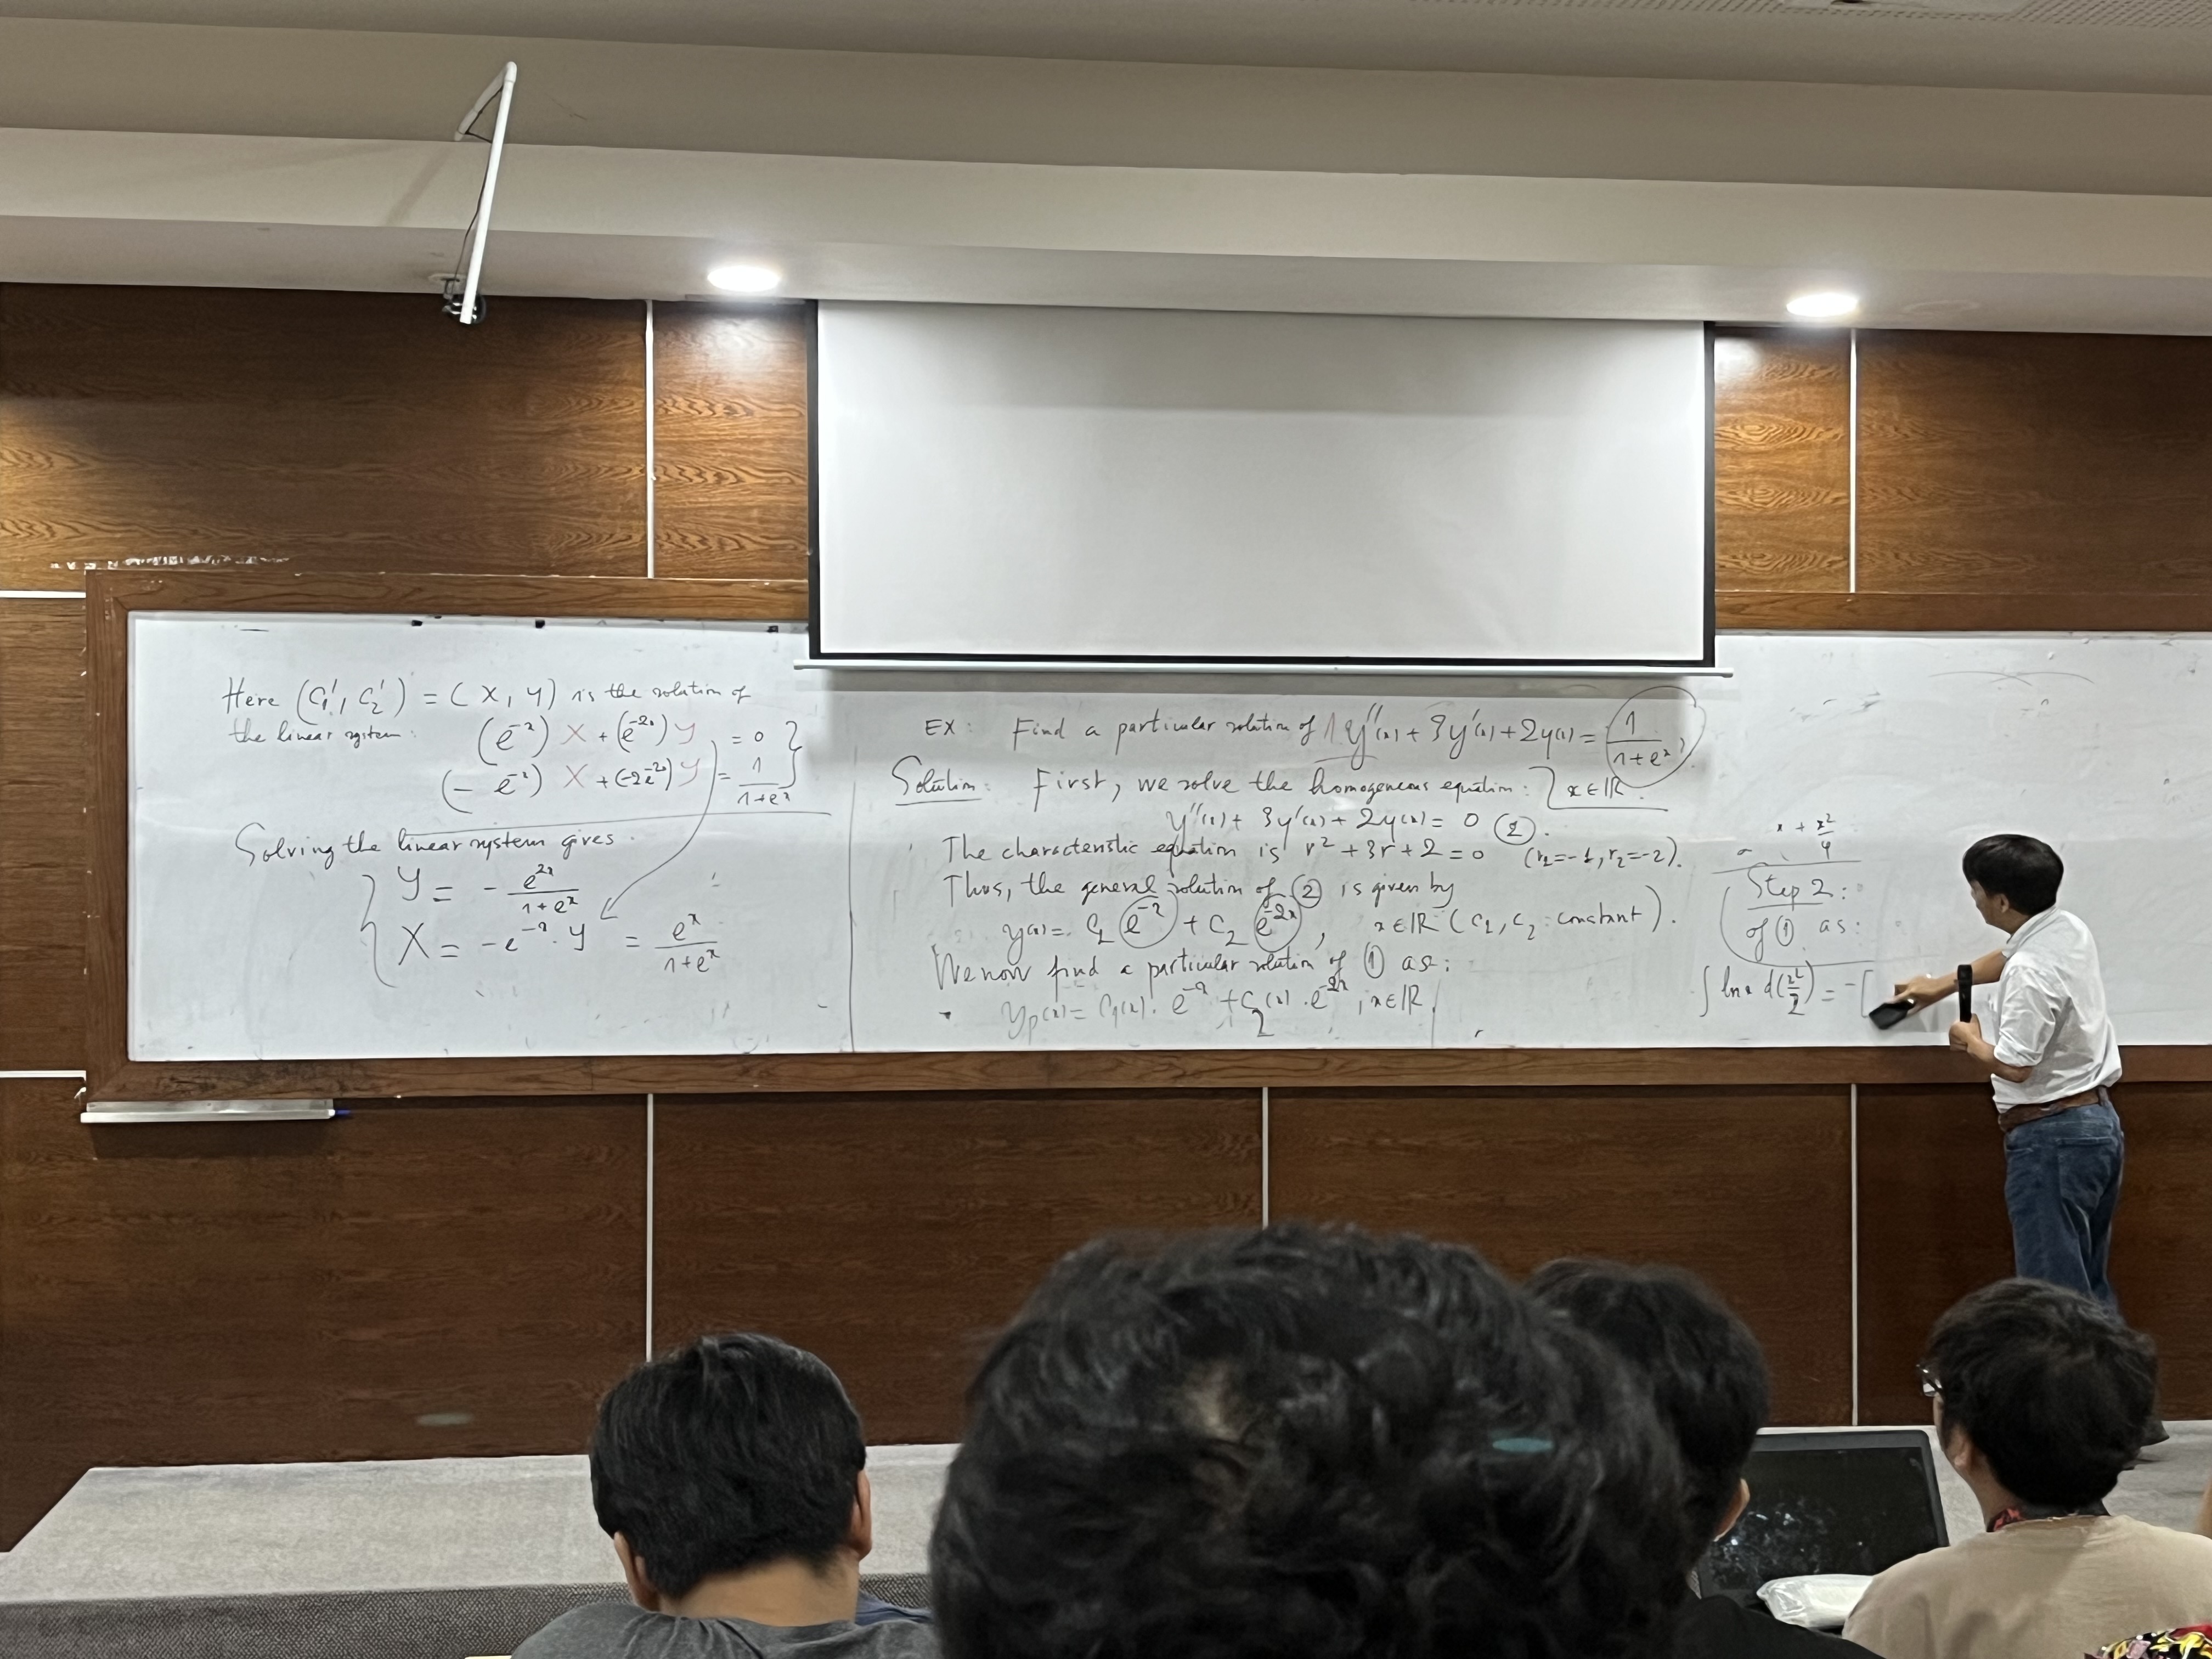 Here (C₁', C₂') = (X, Y) is the solution of
the linear system: (e⁻ˣ) X + (e⁻²ˣ) Y = 0
(- e⁻ˣ) X + (-2e⁻²ˣ) Y = 1/(1+eˣ)
Solving the linear system gives
Y = - e²ˣ/(1+eˣ)
X = -e⁻ˣ · Y = eˣ/(1+eˣ)
EX: Find a particular solution of 1y''(x) + 3y'(x) + 2y(x) = 1/(1+eˣ),
Solution: First, we solve the homogeneous equation: x ∈ ℝ.
y''(x) + 3y'(x) + 2y(x) = 0 (2).
The characteristic equation is r² + 3r + 2 = 0 (r₁=-1, r₂=-2).
Thus, the general solution of (2) is given by
y(x) = C₁ e⁻ˣ + C₂ e⁻²ˣ, x ∈ ℝ (C₁, C₂: constant).
We now find a particular solution of (1) as:
yp(x) = C₁(x) · e⁻ˣ + C₂(x) · e⁻²ˣ, x ∈ ℝ.
x + x²/4
Step 2:
of (1) as:
∫ ln x d(x²/2) = - [